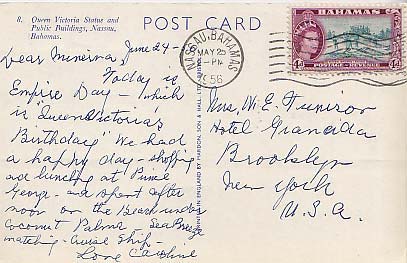 8. Queen Victoria Statue and
Public Buildings, Nassau,
Bahamas.
POST CARD
June 24 -
Dear Minerva,
Today is
Empire Day - which
is "Queen Victorias
Birthday" We had
a happy day - shopping
and lunching at Prince
George - and spent after
noon on the Beach under
Coconut Palms - Sea Breeze
matching - Cruise Ship -
Love Caroline
PRINTED IN ENGLAND BY HARRISON, SON & HALL, LTD.
NASSAU, BAHAMAS
MAY 25
PM
56
BAHAMAS
4d 4d
POSTAGE - REVENUE
Mrs W. E. Tunison
Hotel Granada
Brooklyn
New York
U.S.A.